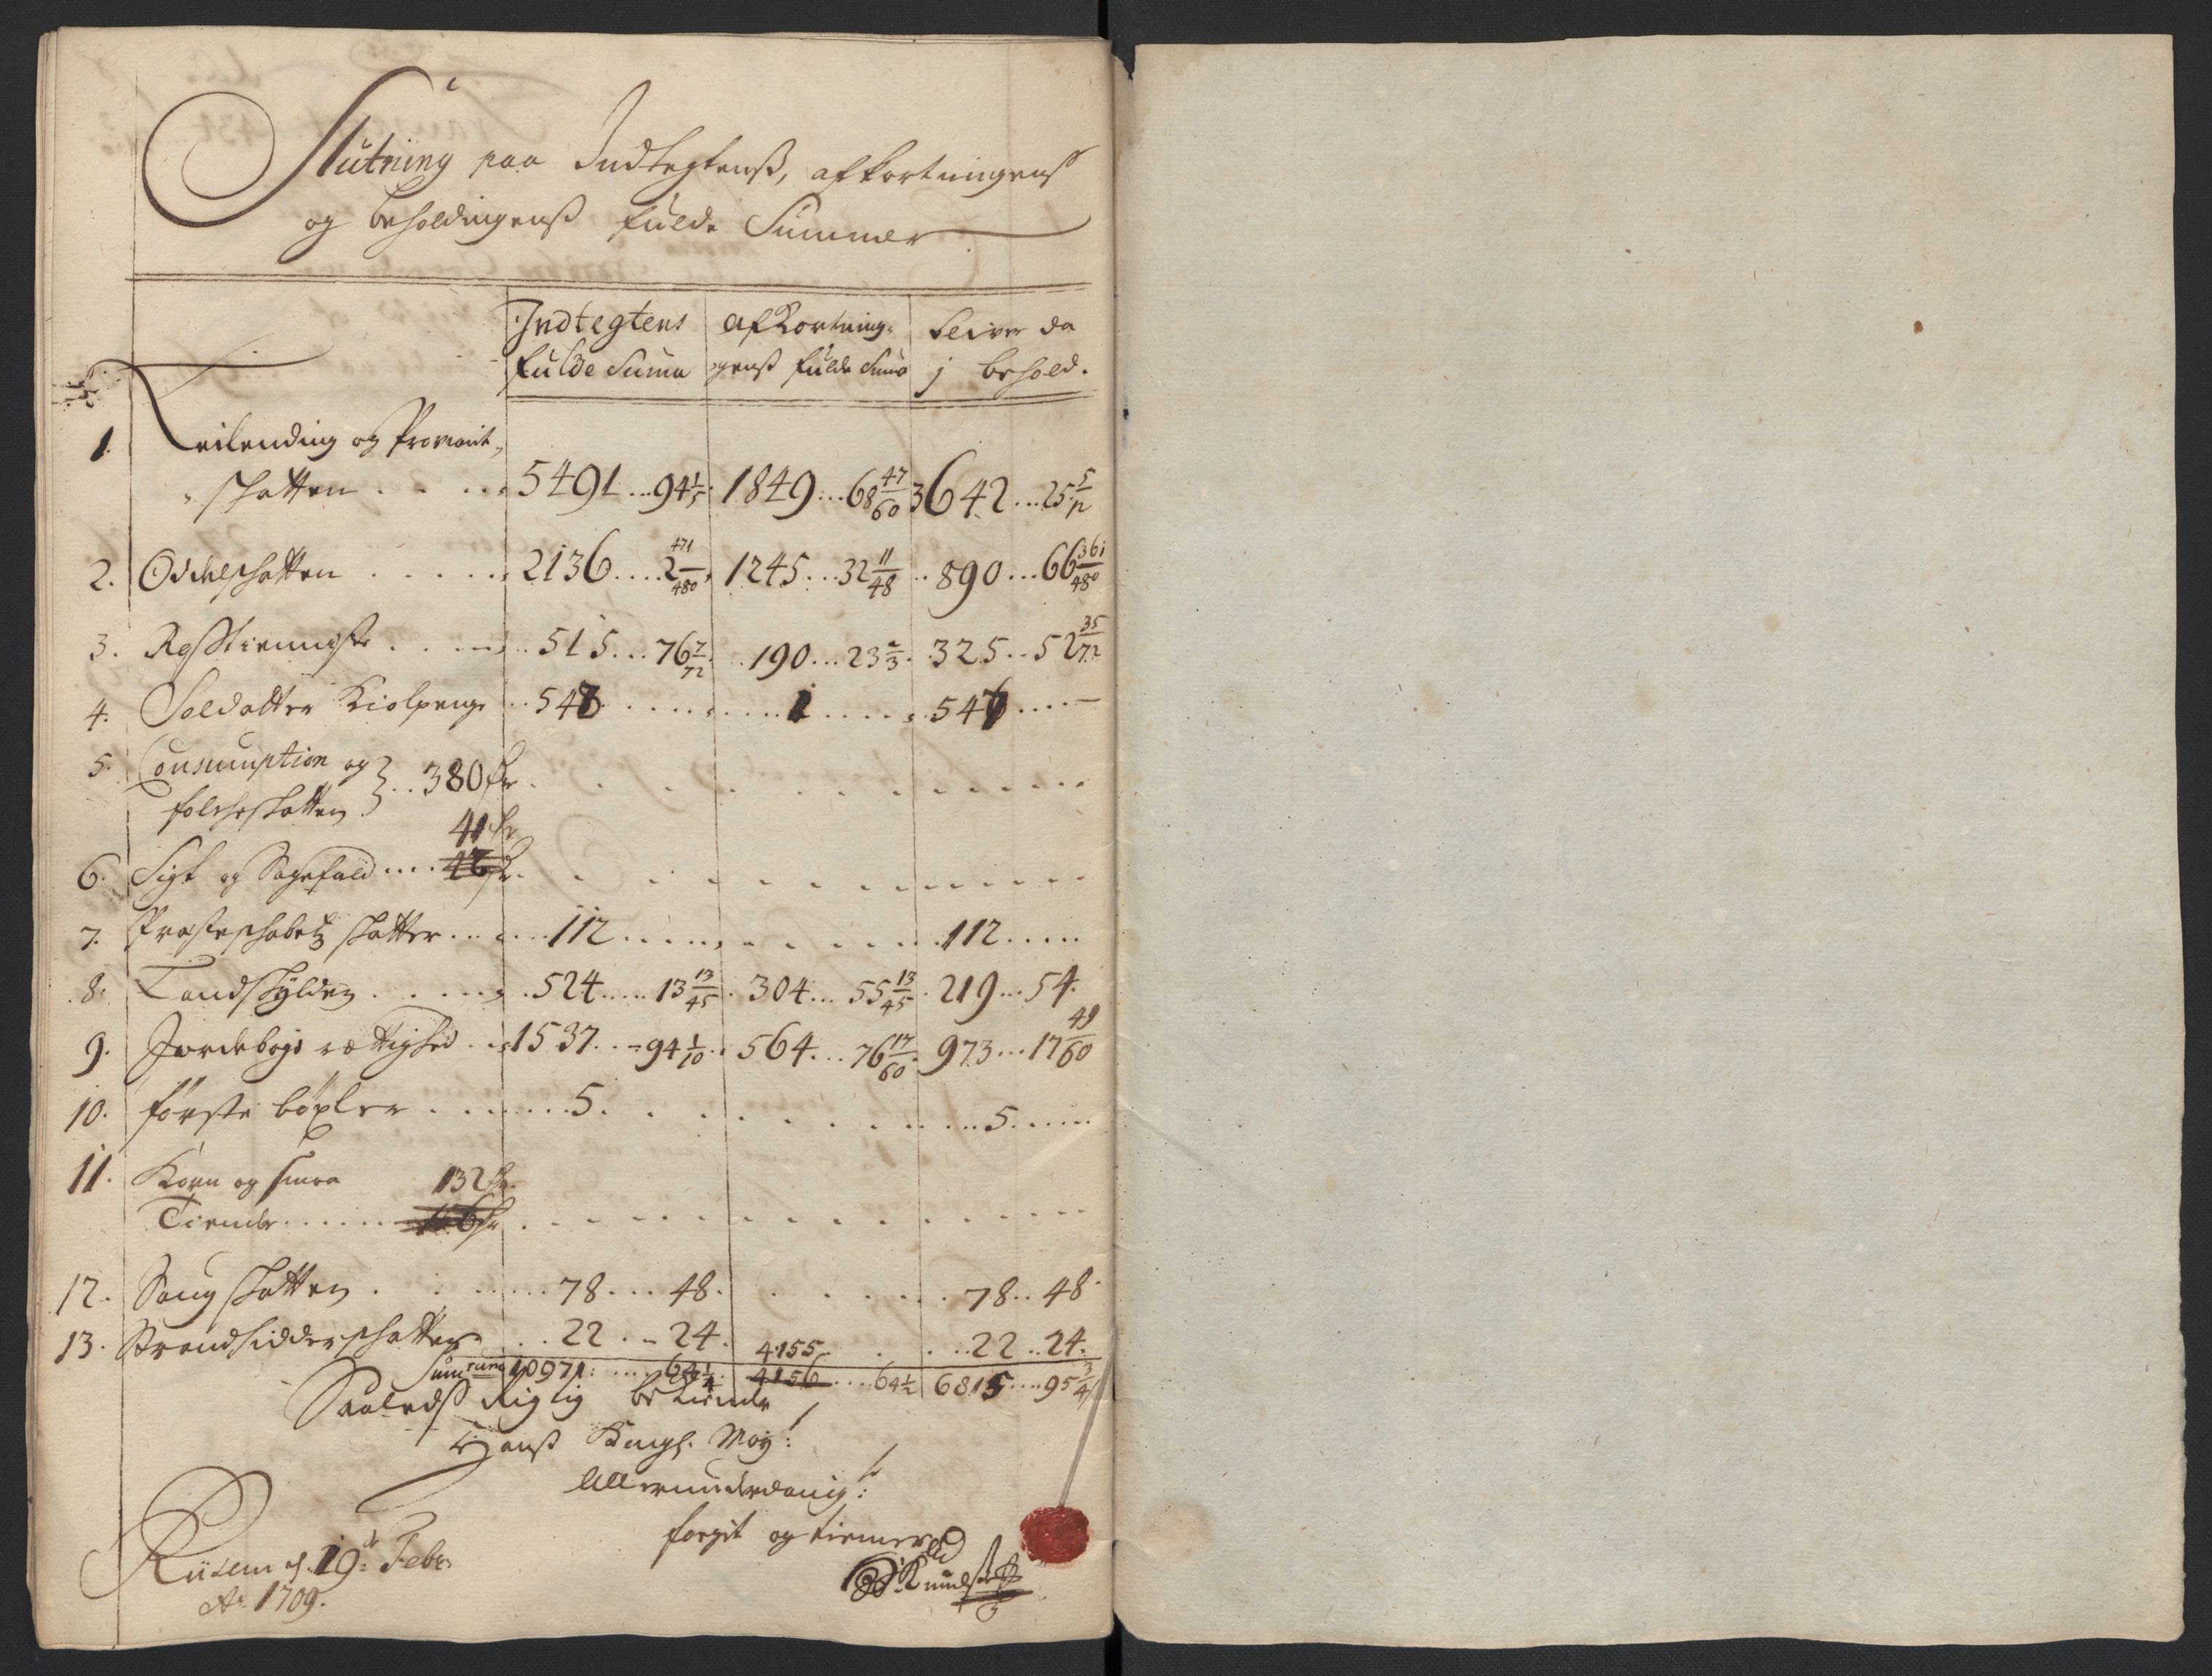 Slutning paa Indtegtenß, afkortningenß
og beholdingenß fulde Summer
Indtegtens afkortnin- bliver da
fulde Suma genß fulde Suma j behold.
1. Leilending og Proviant
skatten 5491 94 1/5 1849 68 47/60 3642 25 5/12
2. Odelskatten 2136 2 471/480 1245 32 11/48 890 66 361/480
3. Roßtienniste 515 76 7/72 190 23 2/3 325 52 35/72
4. Soldatter Kiolpenge 548 1 547
5. Consumption og
folcheskatten 380 hr
41 hr
6. Sigt og Sagefald 46 hr
7. Præsteskabetz skatter 112 112
8. Landskylden 524 13 13/45 304 55 13/45 219 54
9. Jordebogs rættighed 1537 94 1/10 564 76 17/60 973 17 49/60
10. første bøxler 5 5
11. Korn og smaa 132 hr
Tiender
12. Saugskatten 78 48 78 48
13. Strandsidderskatten 22 24 4155 22 24
Sum 10971 64 1/4 4156 64 1/2 6815 95 3/4
Saaledß Rigtig bekiender
Hanß Kongl. May:
Allerunderdanig:
fogit og tienner
Knudsen
d. 19de Febr
Ao 1709.